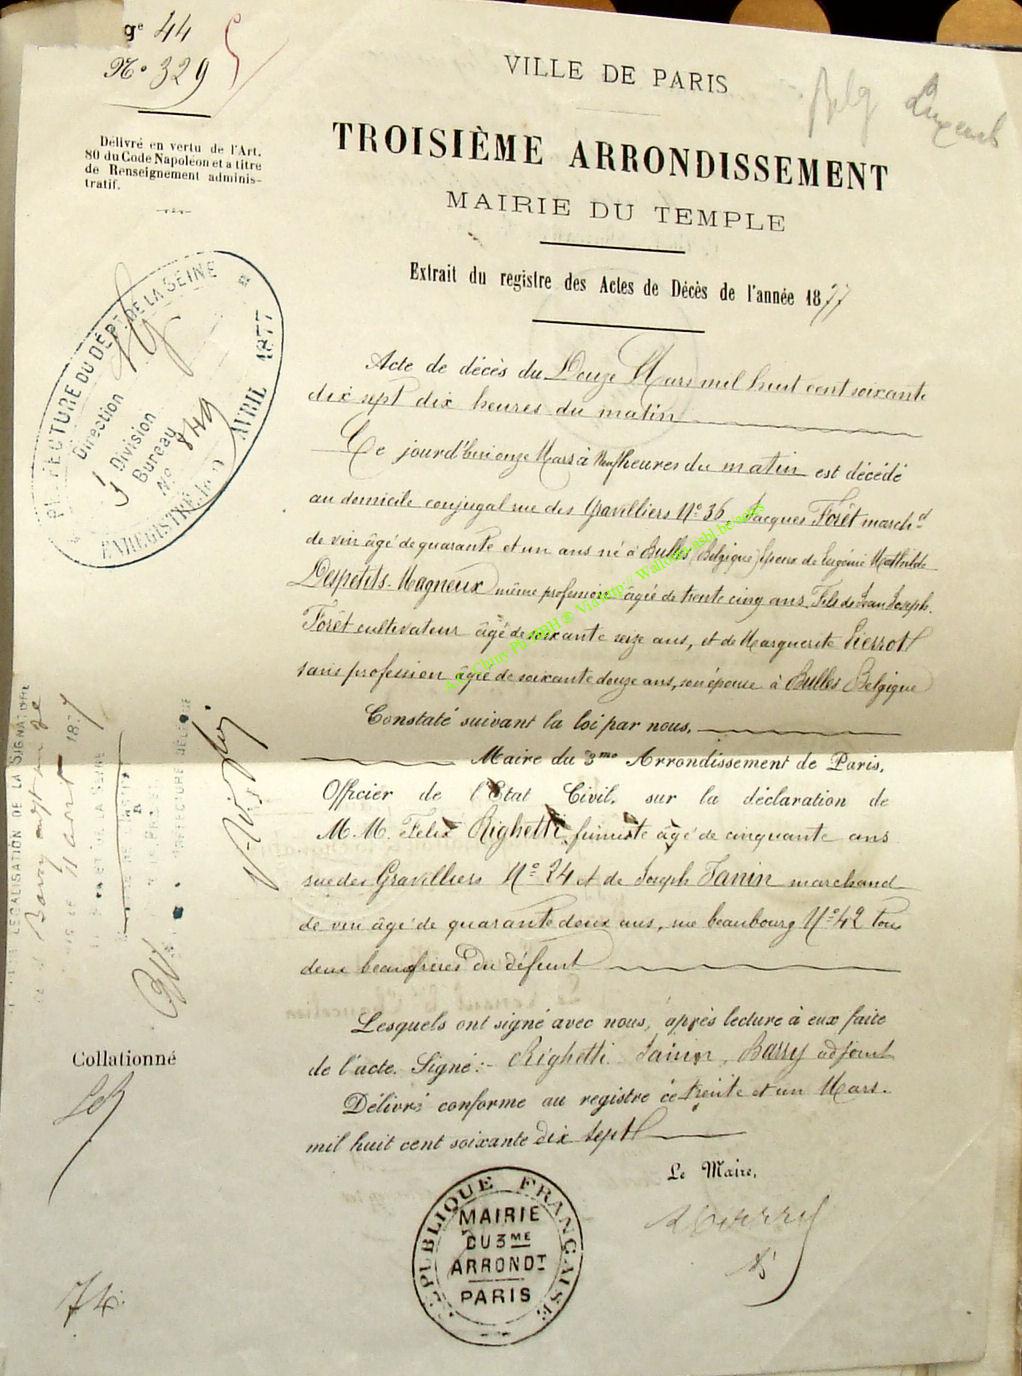 gᵉ 44
Nº 329
Délivré en vertu de l'Art.
80 du Code Napoléon et a titre
de Renseignement adminis-
tratif.
VILLE DE PARIS
TROISIÈME ARRONDISSEMENT
MAIRIE DU TEMPLE
Extrait du registre des Actes de Décès de l'année 1877
Belg
PRÉFECTURE DU DÉPT DE LA SEINE
Direction
Division
Bureau
Nº 849
ENREGISTRÉ le
AVRIL 1877
Acte de décès du Douze Mars mil huit cent soixante
dix sept dix heures du matin
Ce jourd'hui onze Mars à Neuf heures du matin est décédé
au domicile conjugal rue des Gravilliers Nº 36 Jacques Forêt march^d
de vin âgé de quarante et un ans né à Bulles (Belgique) Epoux de Eugénie Mathilde
Despetits-Magneux même profession âgée de trente cinq ans. Fils de Jean Joseph.
Forêt cultivateur âgé de soixante seize ans, et de Marguerite Pierrot
sans profession âgée de soixante douze ans, son épouse à Bulles Belgique
Constaté suivant la loi par nous,
Maire du 3me Arrondissement de Paris,
Officier de l'Etat Civil, sur la déclaration de
M.M. Felix Righetti, fumiste âgé de cinquante ans
rue des Gravilliers Nº 24 et de Joseph Janin marchand
de vin âgé de quarante deux ans, rue beaubourg Nº 42 tous
deux beaufrères du défunt
Lesquels ont signé avec nous, après lecture à eux faite
de l'acte. Signé:- Righetti Janin, Barry adjoint
Délivré conforme au registre ce trente et un Mars.
mil huit cent soixante dix sept
LÉGALISATION DE LA SIGNATURE
Collationné
Le Maire,
RÉPUBLIQUE FRANÇAISE
MAIRIE
DU 3ME
ARRONDT
PARIS
74